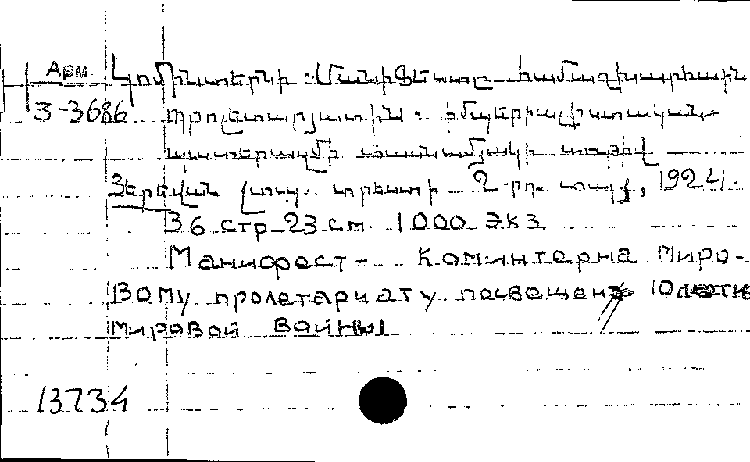 Арм.
3-3686
Կոմինտերնի Մանիֆեստը համաշխարհային
պրոլետարյատին. իմպերիալիստական
պատերազմի տասնամյակի առթիվ
Յերևան լուս. տրեստի 2-րդ. տպ., 1924.
36 стр 23 см. 1000 экз
Манифест- Коминтерна миро-
вому пролетариату посвящен 10летию
мировой войны
13734